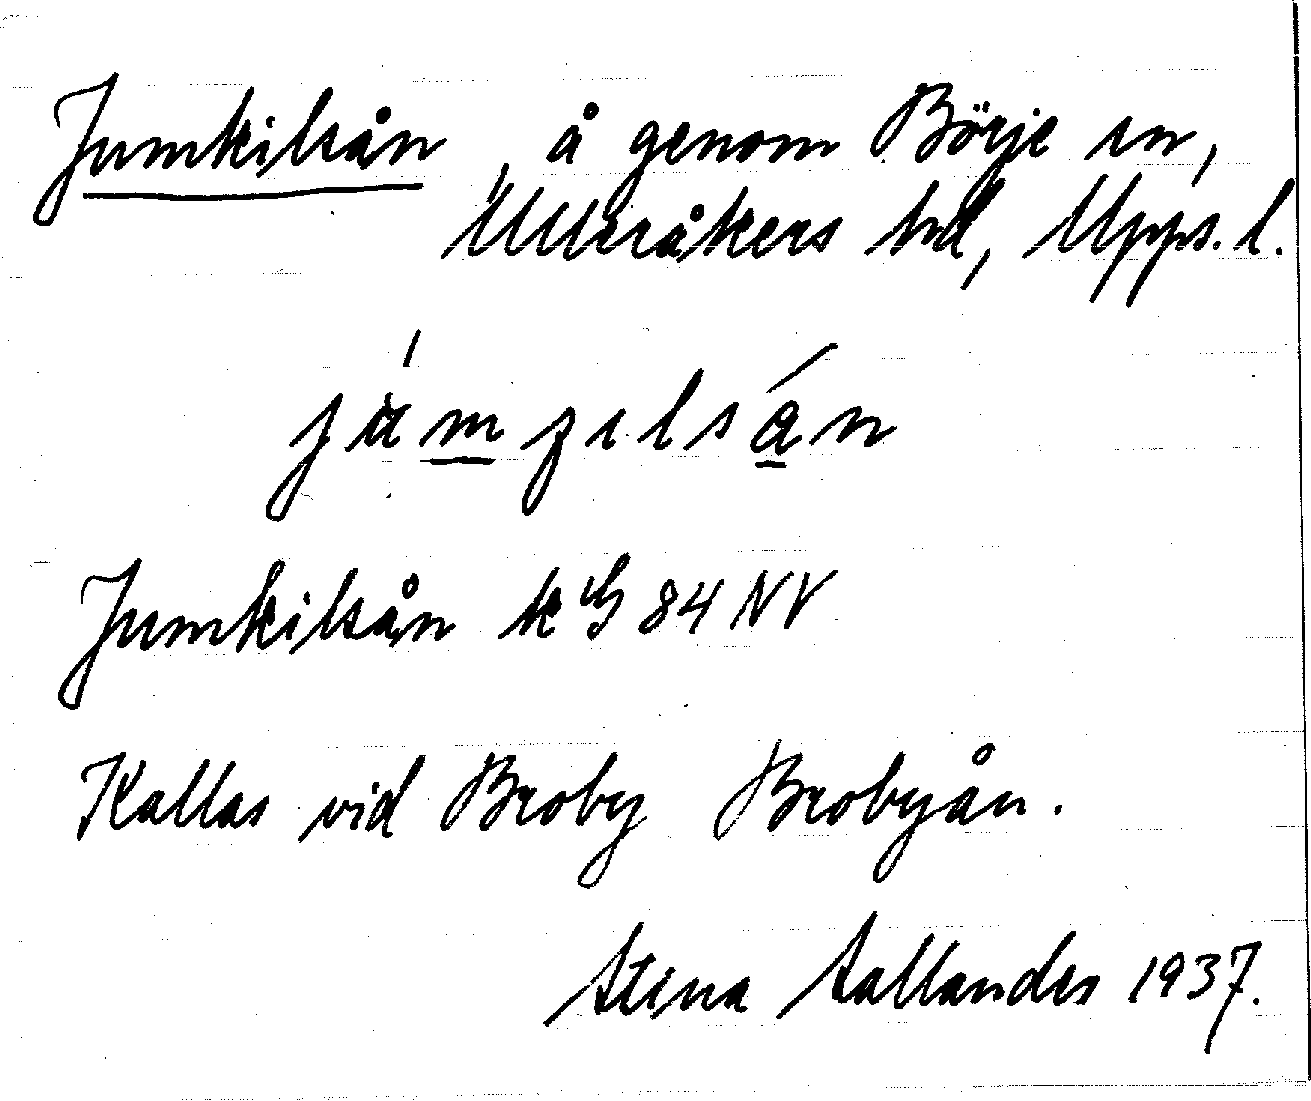 Jumkilsån, å genom Börje sn,
Ulleråkers hd, Upps. l.
Jumkilsån k 84 NV
Kallas vid Broby Brobyån.
Stina Sallander 1937.